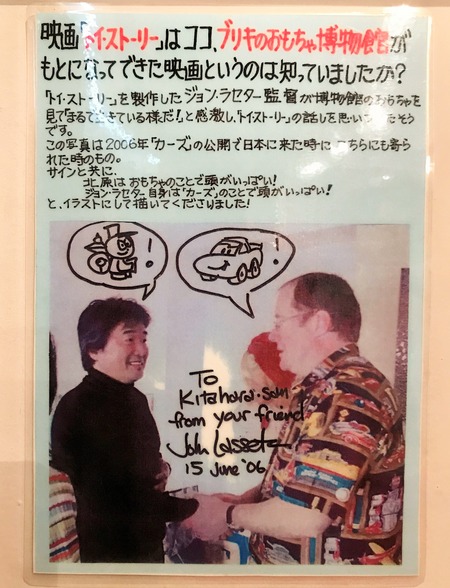 映画「トイ・ストーリー」はココ、ブリキのおもちゃ博物館が
もとになってできた映画というのは知っていましたか?
「トイ・ストーリー」を製作したジョン・ラセター監督が博物館のおもちゃを
見て「まるで生きている様だ!」と感激し、「トイ・ストーリー」の話しを思いついたそう
です。
この写真は2006年「カーズ」の公開で日本に来た時にこちらにも寄ら
れた時のもの。
サインと共に、
北原はおもちゃのことで頭がいっぱい!
ジョン・ラセター自身は「カーズ」のことで頭がいっぱい!
と、イラストにして描いてくださりました!
!
!
To
Kitahara-san
from your friend
John Lasseter
15 June '06